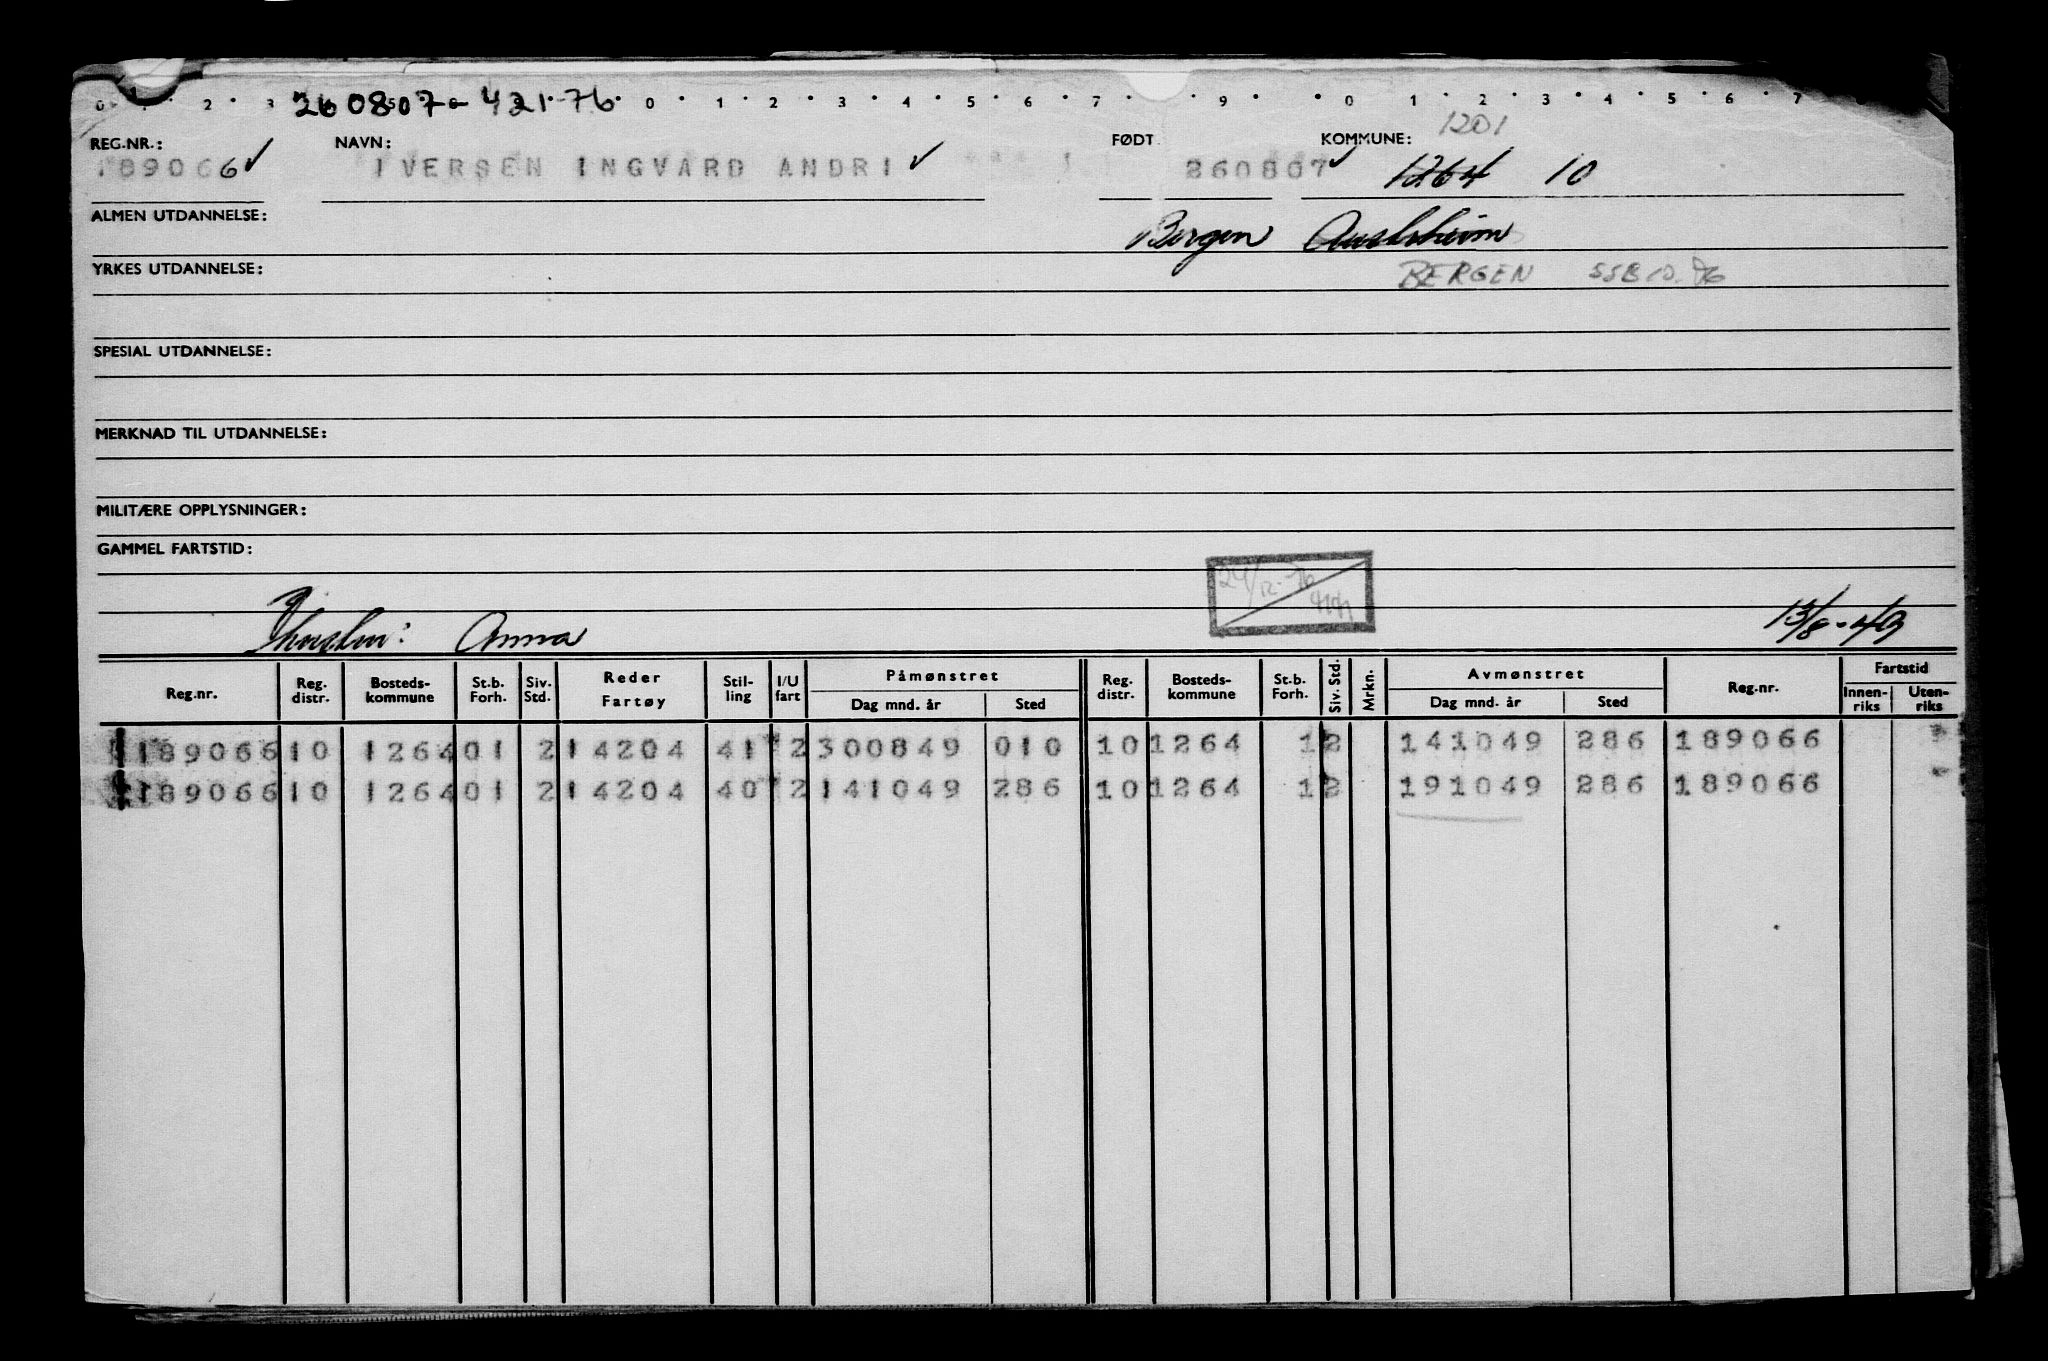 260807-421-76
0 1 2 3 0 1 2 3 4 5 6 7 9 0 1 2 3 4 5 6 7
1201
REG.NR.: NAVN: FØDT KOMMUNE:
189066 ✓ IVERSEN INGVARD ANDRI ✓ 260807 ✓ 1264 10
ALMEN UTDANNELSE: Bergen Austrheim
YRKES UTDANNELSE: BERGEN SSB 10.76
SPESIAL UTDANNELSE:
MERKNAD TIL UTDANNELSE:
MILITÆRE OPPLYSNINGER:
GAMMEL FARTSTID:
24/12-76
Anna 13/8-49
Reg.nr. Reg. distr. Bosteds-kommune St.b. Forh. Siv. Std. Reder Fartøy Stil-ling I/U fart Påmønstret Dag mnd. år Sted Reg. distr. Bosteds-kommune St.b. Forh. Siv. Std. Mrkn. Avmønstret Dag mnd. år Sted Reg.nr. Fartstid Innen-riks Uten-riks
189066 10 1264 01 2 14204 41 2 300849 010 10 1264 1 2 141049 286 189066
189066 10 1264 01 2 14204 40 2 141049 286 10 1264 1 2 191049 286 189066